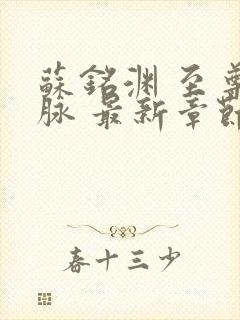 蘇銘渊 至尊
脉 最新章節
春十三少